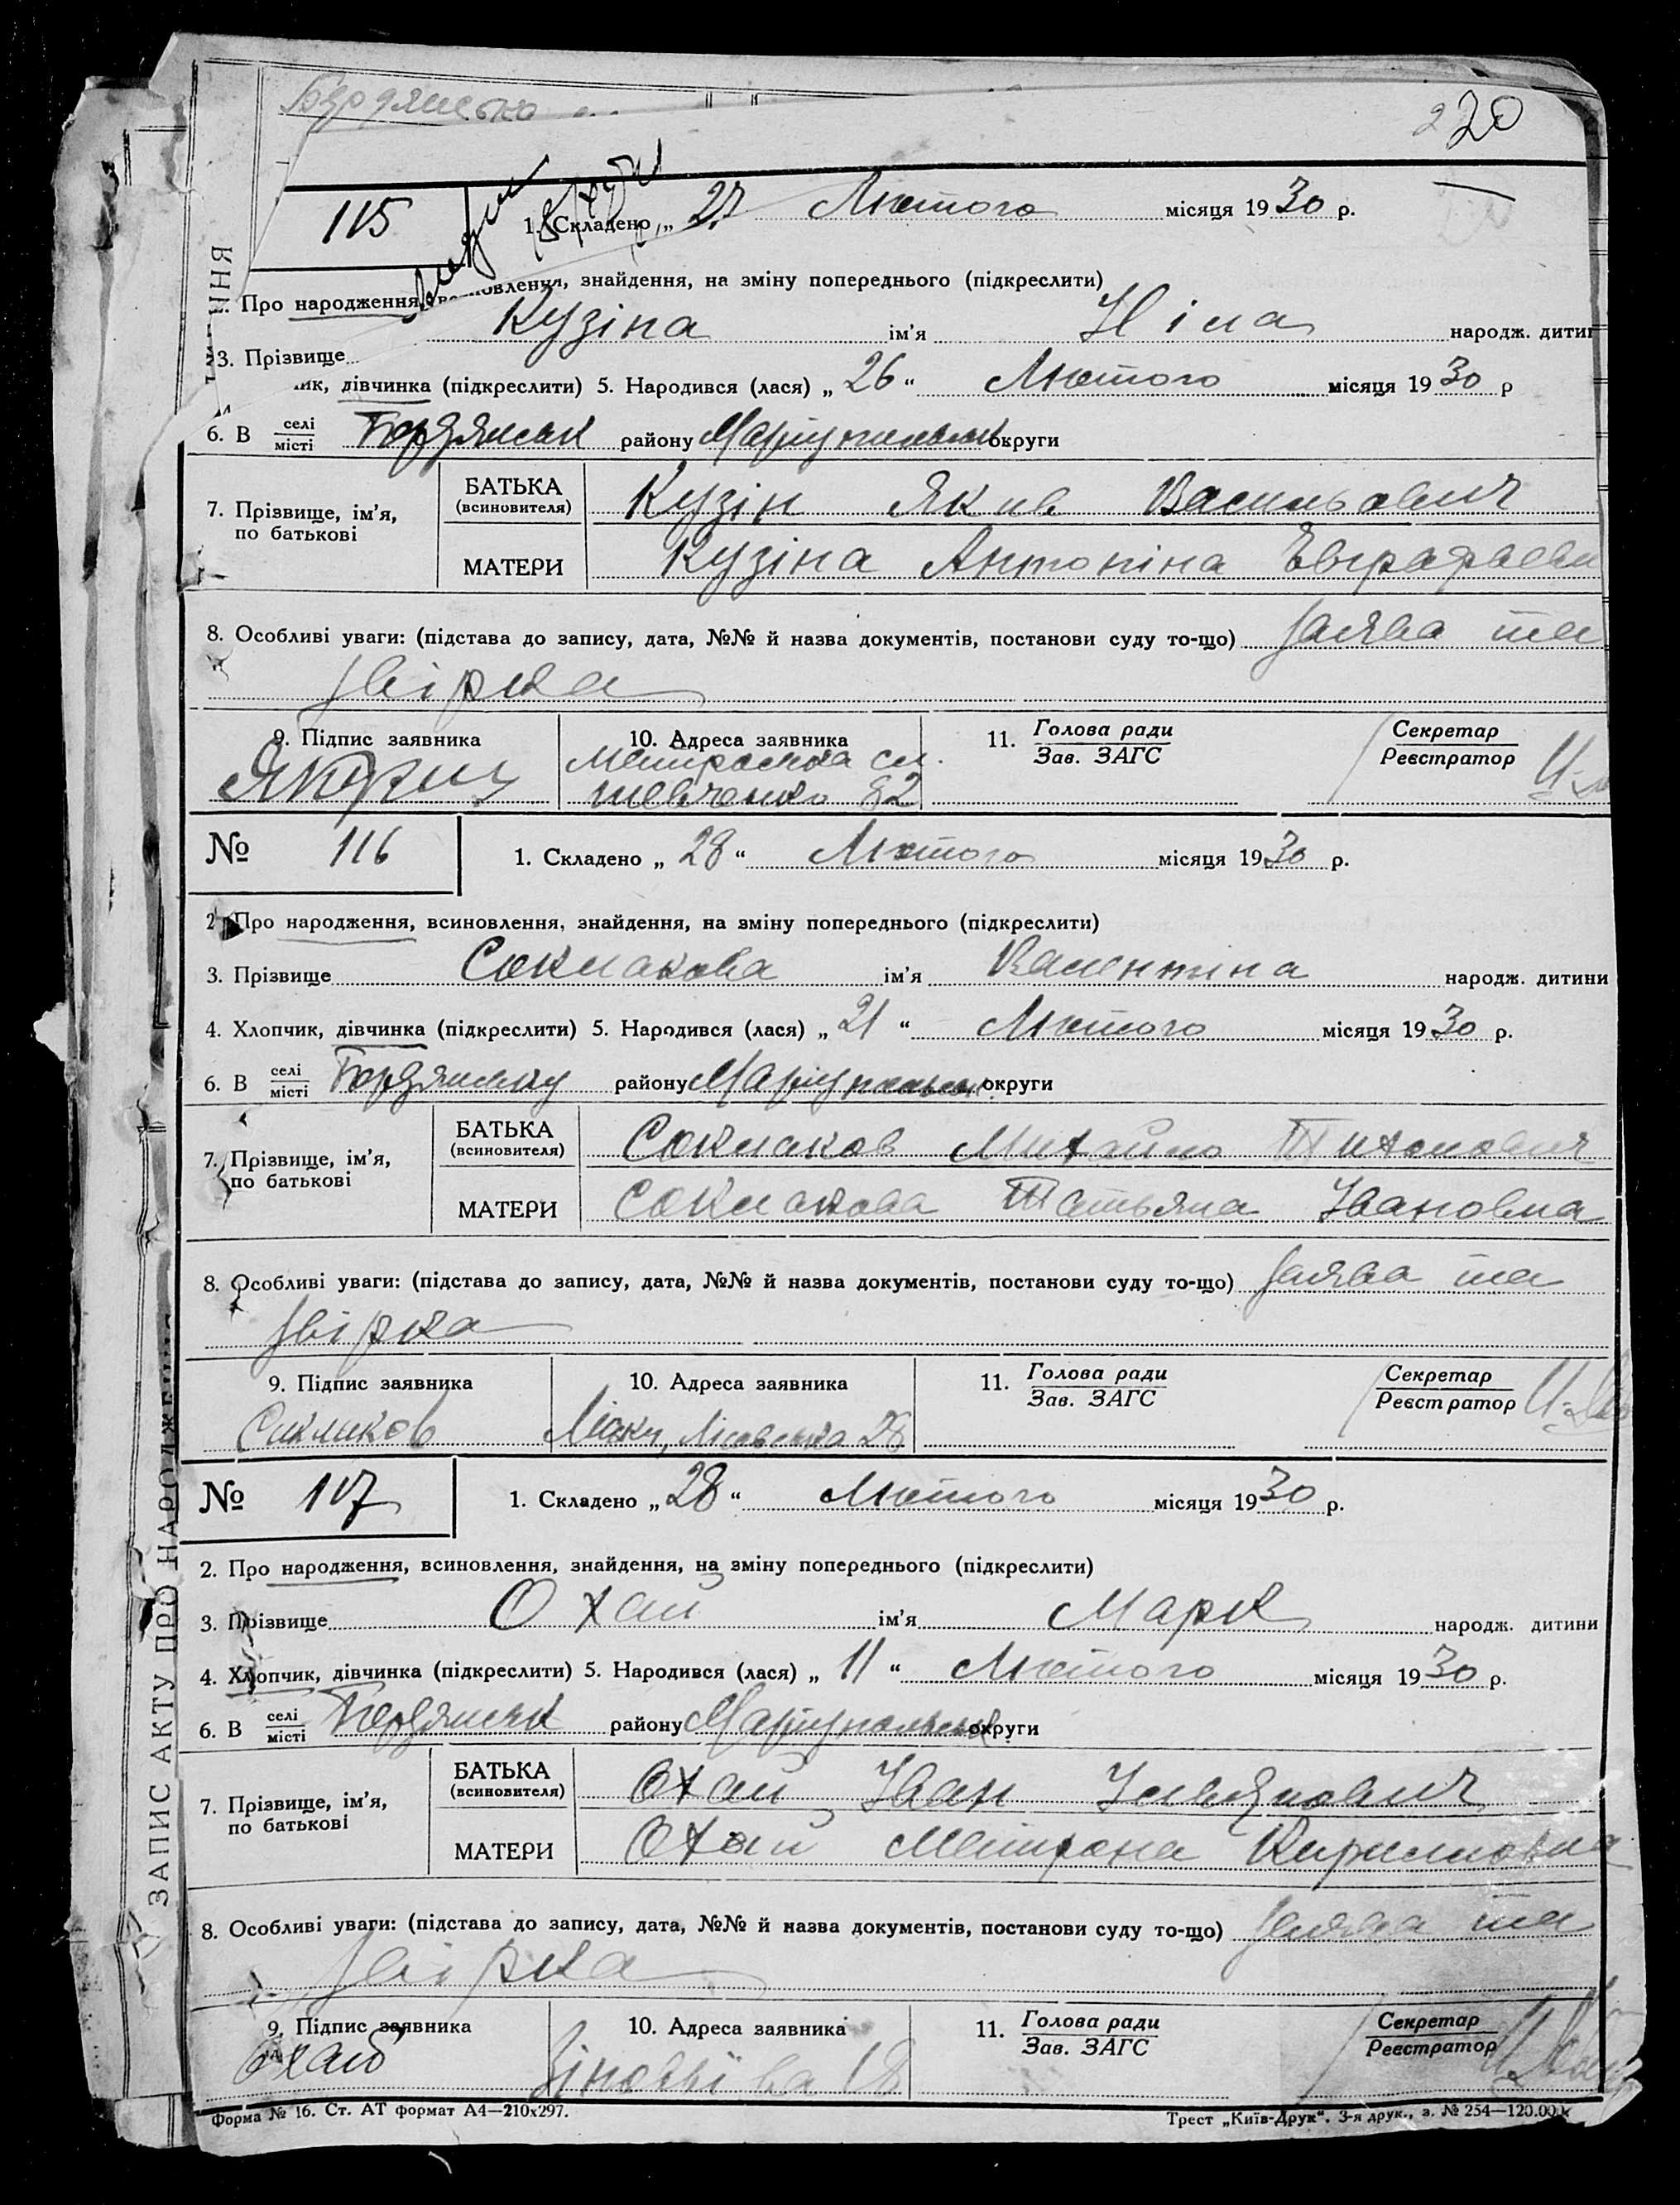 Бердянсько
220
115
1. Складено „ 27 Лютого місяця 1930 р.
Про народження, всиновлення, знайдення, на зміну попереднього (підкреслити)
3. Прізвище Кузіна ім'я Ніна народж. дити
ик, дівчинка (підкреслити) 5. Народився (лася) „ 26 “ Лютого місяця 1930 р
6. В селі/місті Бердянськ району Маріупольськ округи
7. Прізвище, ім'я, по батькові
БАТЬКА (всиновителя) Кузін Яків Васильович
МАТЕРИ Кузіна Антоніна Евграфівн
8. Особливі уваги: (підстава до запису, дата, №№ й назва документів, постанови суду то-що) Заява та
звірка
9. Підпис заявника
10. Адреса заявника
11. Голова ради / Зав. ЗАГС
Секретар / Реєстратор
Шевченко 82
№ 116
1. Складено „ 28 “ Лютого місяця 1930 р.
2. Про народження, всиновлення, знайдення, на зміну попереднього (підкреслити)
3. Прізвище Соклакова ім'я Валентина народж. дитини
4. Хлопчик, дівчинка (підкреслити) 5. Народився (лася) „ 21 “ Лютого місяця 1930 р.
6. В селі/місті Бердянську району Маріупольськ округи
7. Прізвище, ім'я, по батькові
БАТЬКА (всиновителя) Соклаков Михайло Тихонович
МАТЕРИ Соклакова Татьяна Івановна
8. Особливі уваги: (підстава до запису, дата, №№ й назва документів, постанови суду то-що) Заява та
звірка
9. Підпис заявника
10. Адреса заявника
11. Голова ради / Зав. ЗАГС
Секретар / Реєстратор
Соклаков
28
№ 117
1. Складено „ 28 “ Лютого місяця 1930 р.
2. Про народження, всиновлення, знайдення, на зміну попереднього (підкреслити)
3. Прізвище Охай ім'я Марк народж. дитини
4. Хлопчик, дівчинка (підкреслити) 5. Народився (лася) „ 11 “ Лютого місяця 1930 р.
6. В селі/місті Бердянськ району Маріупольськ округи
7. Прізвище, ім'я, по батькові
БАТЬКА (всиновителя) Охай Іван
МАТЕРИ Охай Мотрона Кириловна
8. Особливі уваги: (підстава до запису, дата, №№ й назва документів, постанови суду то-що) Заява та
звірка
9. Підпис заявника
10. Адреса заявника
11. Голова ради / Зав. ЗАГС
Секретар / Реєстратор
Зіновьіва 18
Форма № 16. Ст. АТ формат А4—210х297.
Трест „Київ-Друк“. 3-я друк., з. № 254—120.000
ЗАПИС АКТУ ПРО НАРОДЖЕННЯ